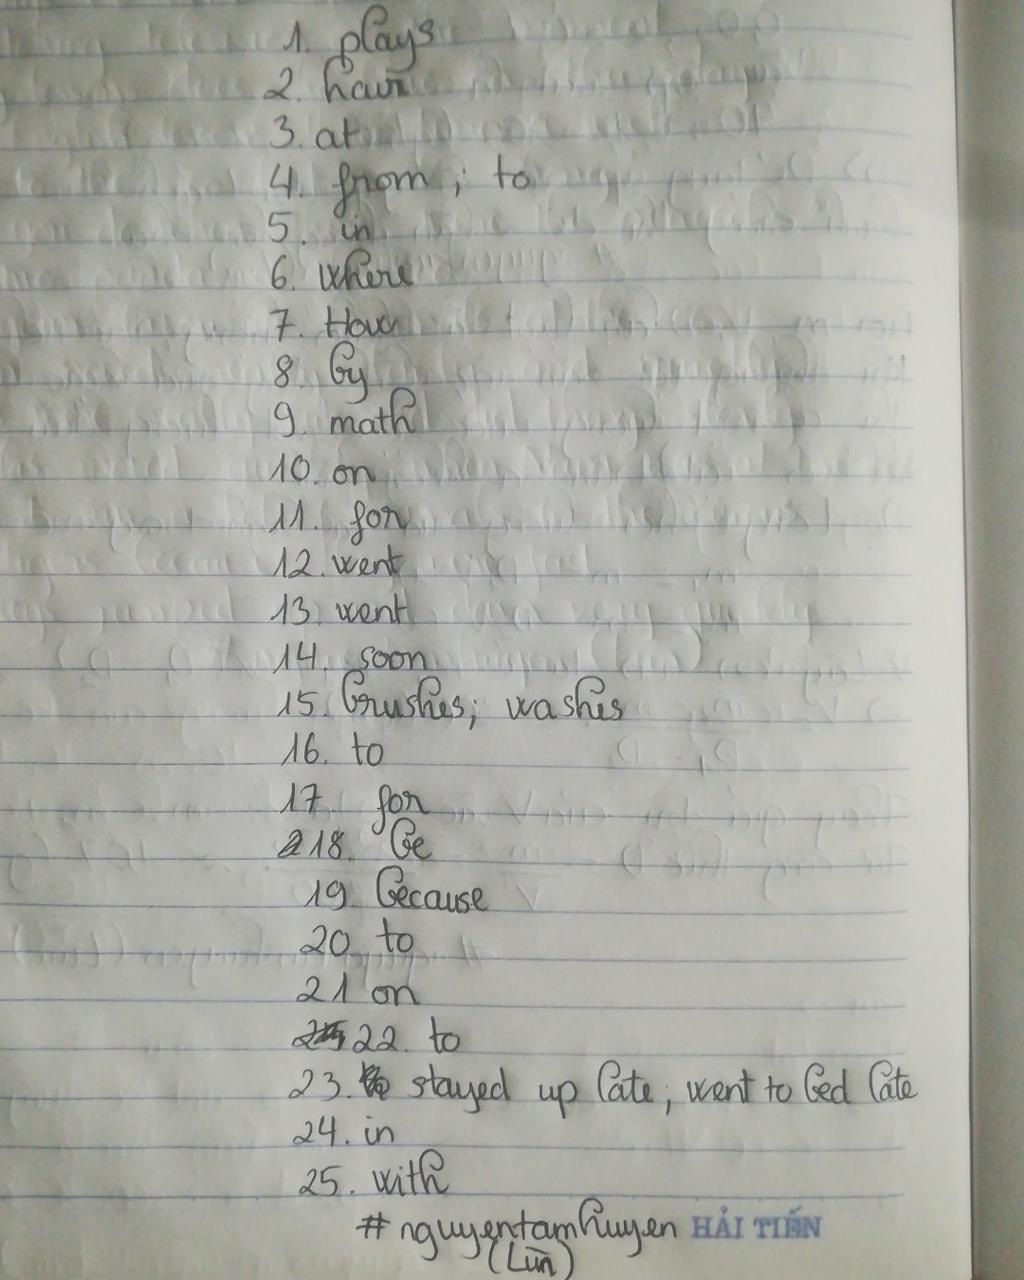 1. plays
2. have
3. at
4. from ; to
5. in
6. where
7. How
8. by
9. math
10. on
11. for
12. went
13. went
14. soon
15. brushes; washes
16. to
17 for
18. be
19. because
20. to
21 on
22. to
23. stayed up late ; went to bed late
24. in
25. with
# nguyentamhuyen HẢI TIẾN
(Lùn)